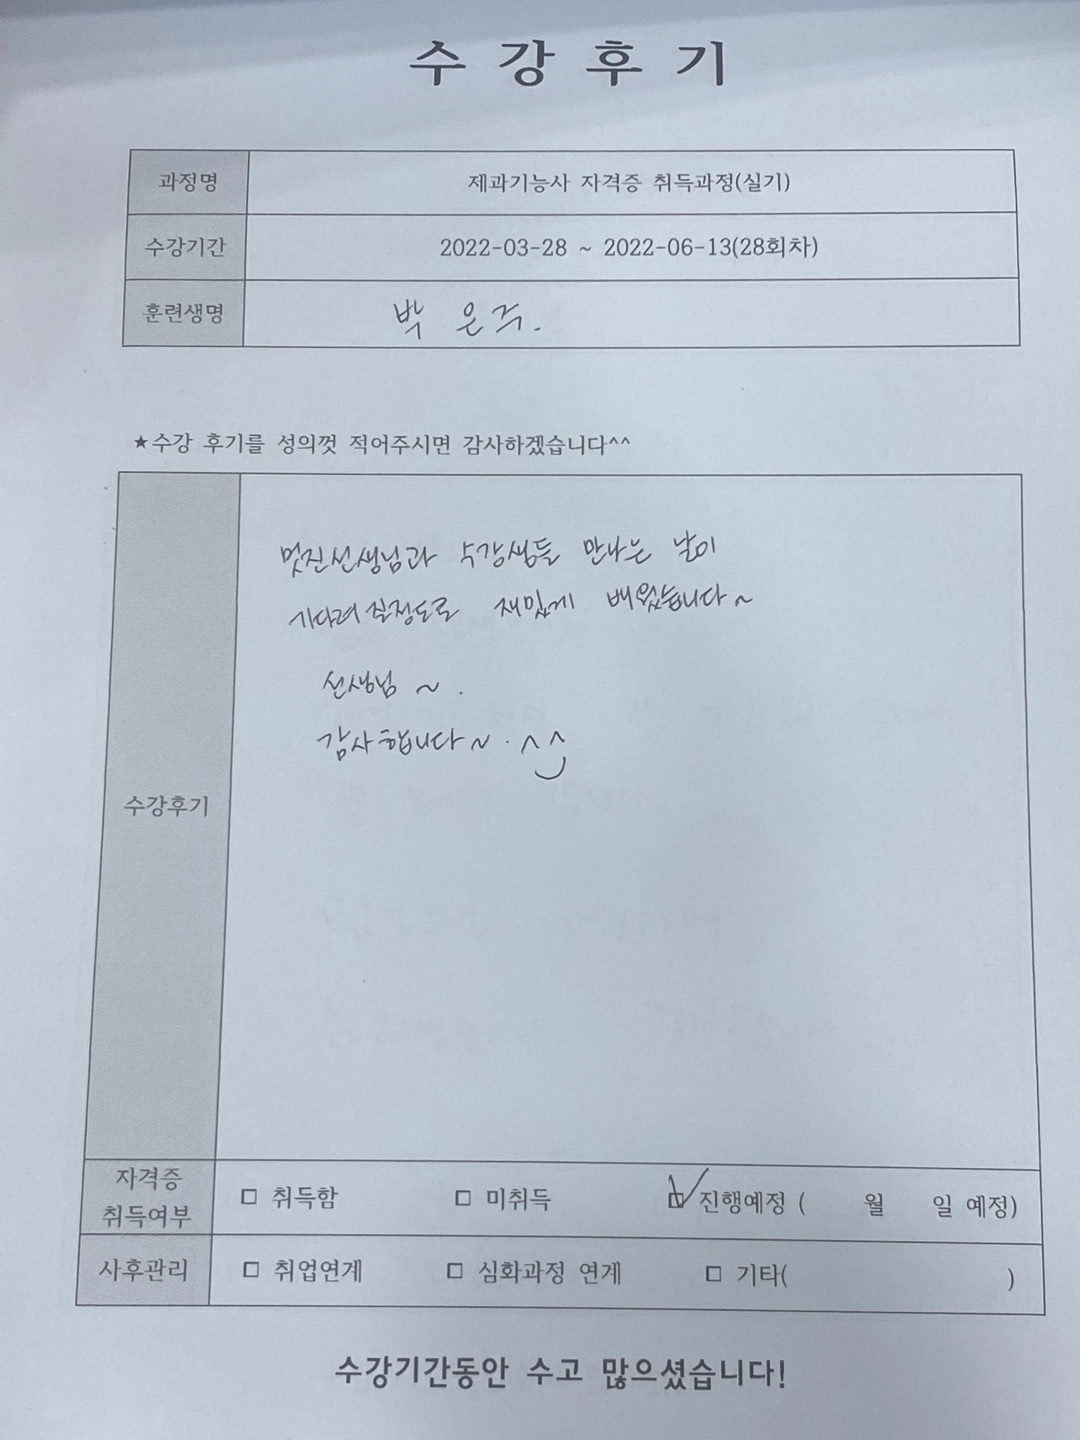 수 강 후 기
과정명 제과기능사 자격증 취득과정(실기)
수강기간 2022-03-28 ~ 2022-06-13(28회차)
훈련생명 박 은 주.
★수강 후기를 성의껏 적어주시면 감사하겠습니다^^
수강후기
멋진선생님과 수강생들 만나는 날이
기다려 질정도로 재밌게 배웠습니다~
선생님 ~ .
감사합니다~ . ^^
자격증
취득여부 □ 취득함 □ 미취득 ☑ 진행예정 ( 월 일 예정)
사후관리 □ 취업연계 □ 심화과정 연계 □ 기타( )
수강기간동안 수고 많으셨습니다!